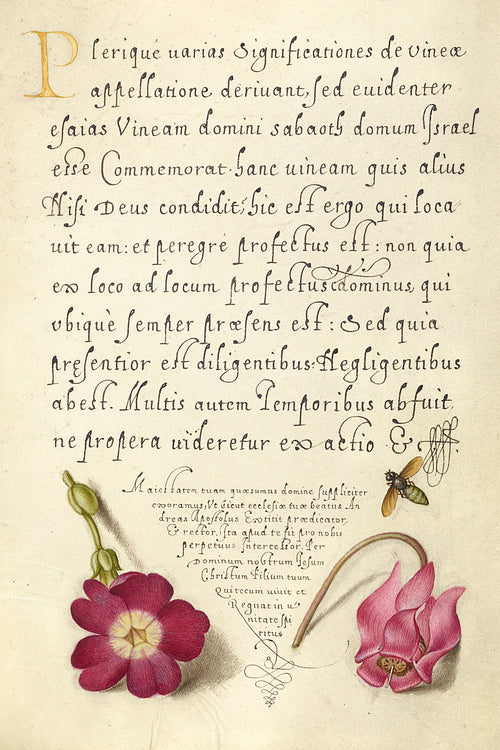 Plerique varias Significationes de vineæ
appellatione deriuant, sed euidenter
esaias Vineam domini sabaoth domum Israel
esse Commemorat. hanc uineam quis alius
Nisi Deus condidit, hic est ergo qui loca
uit eam: et peregre profectus est: non quia
ex loco ad locum profectus dominus, qui
vbique semper præsens est: Sed quia
præsentior est diligentibus: Negligentibus
abest. Multis autem Temporibus abfuit,
ne propera uideretur exactio &
Maiestatem tuam quæsumus domine suppliciter
exoramus, Vt sicut ecclesiæ tuæ beatus An
dreas Apostolus Extitit prædicator,
& rector, ista apud te sit pro nobis
perpetuus Intercessor. Per
Dominum nostrum Iesum
Christum Filium tuum
Qui tecum viuit et
Regnat in u
nitate spi
ritus